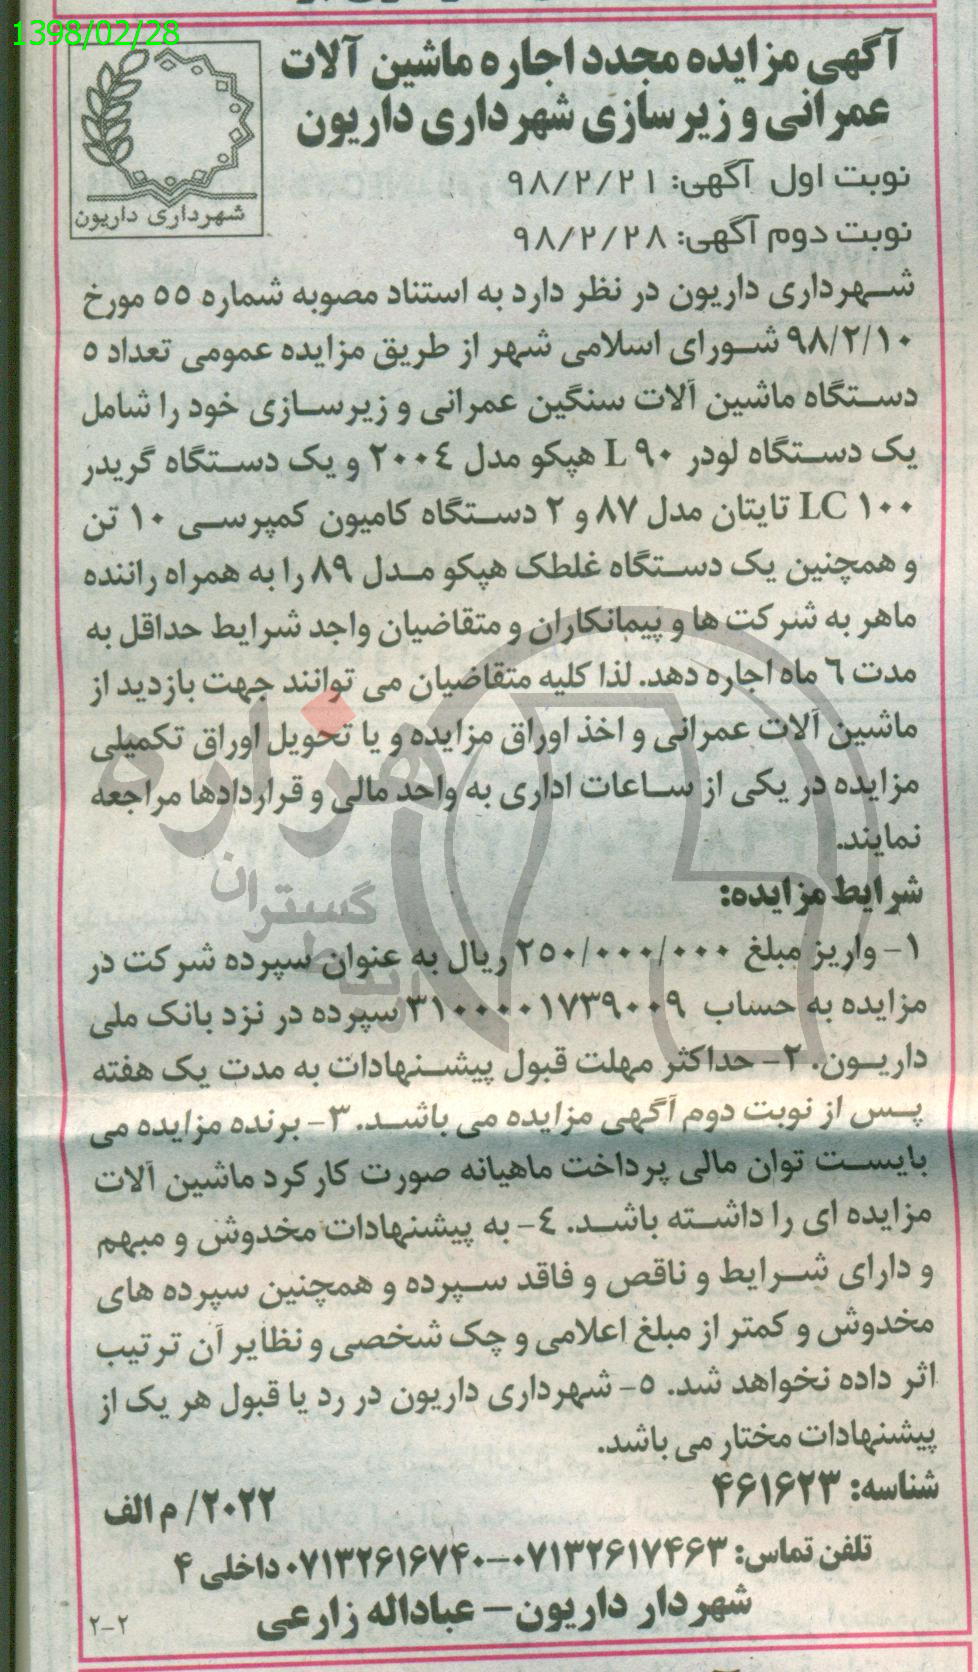 1398/02/28
آگهی مزایده مجدد اجاره ماشین آلات
عمرانی و زیرسازی شهرداری داریون
شهرداری داریون
نوبت اول آگهی: ۹۸/۲/۲۱
نوبت دوم آگهی: ۹۸/۲/۲۸
شهرداری داریون در نظر دارد به استناد مصوبه شماره ۵۵ مورخ
۹۸/۲/۱۰ شورای اسلامی شهر از طریق مزایده عمومی تعداد ۵
دستگاه ماشین آلات سنگین عمرانی و زیرسازی خود را شامل
یک دستگاه لودر L ۹۰ هپکو مدل ۲۰۰۴ و یک دستگاه گریدر
LC ۱۰۰ تایتان مدل ۸۷ و ۲ دستگاه کامیون کمپرسی ۱۰ تن
و همچنین یک دستگاه غلطک هپکو مدل ۸۹ را به همراه راننده
ماهر به شرکت ها و پیمانکاران و متقاضیان واجد شرایط حداقل به
مدت ۶ ماه اجاره دهد. لذا کلیه متقاضیان می توانند جهت بازدید از
ماشین آلات عمرانی و اخذ اوراق مزایده و یا تحویل اوراق تکمیلی
مزایده در یکی از ساعات اداری به واحد مالی و قراردادها مراجعه
نمایند.
هزاره
گستران
شرایط مزایده:
۱- واریز مبلغ ۲۵۰/۰۰۰/۰۰۰ ریال به عنوان سپرده شرکت در
مزایده به حساب ۳۱۰۰۰۰۱۷۳۹۰۰۹ سپرده در نزد بانک ملی
داریون. ۲- حداکثر مهلت قبول پیشنهادات به مدت یک هفته
پس از نوبت دوم آگهی مزایده می باشد. ۳- برنده مزایده می
بایست توان مالی پرداخت ماهیانه صورت کارکرد ماشین آلات
مزایده ای را داشته باشد. ۴- به پیشنهادات مخدوش و مبهم
و دارای شرایط و ناقص و فاقد سپرده و همچنین سپرده های
مخدوش و کمتر از مبلغ اعلامی و چک شخصی و نظایر آن ترتیب
اثر داده نخواهد شد. ۵- شهرداری داریون در رد یا قبول هر یک از
پیشنهادات مختار می باشد.
شناسه: ۴۶۱۶۲۳
۲۰۲۲/ م الف
تلفن تماس: ۰۷۱۳۲۶۱۷۴۶۳-۰۷۱۳۲۶۱۶۷۴۰ داخلی ۴
شهردار داریون - عباداله زارعی
۲-۲